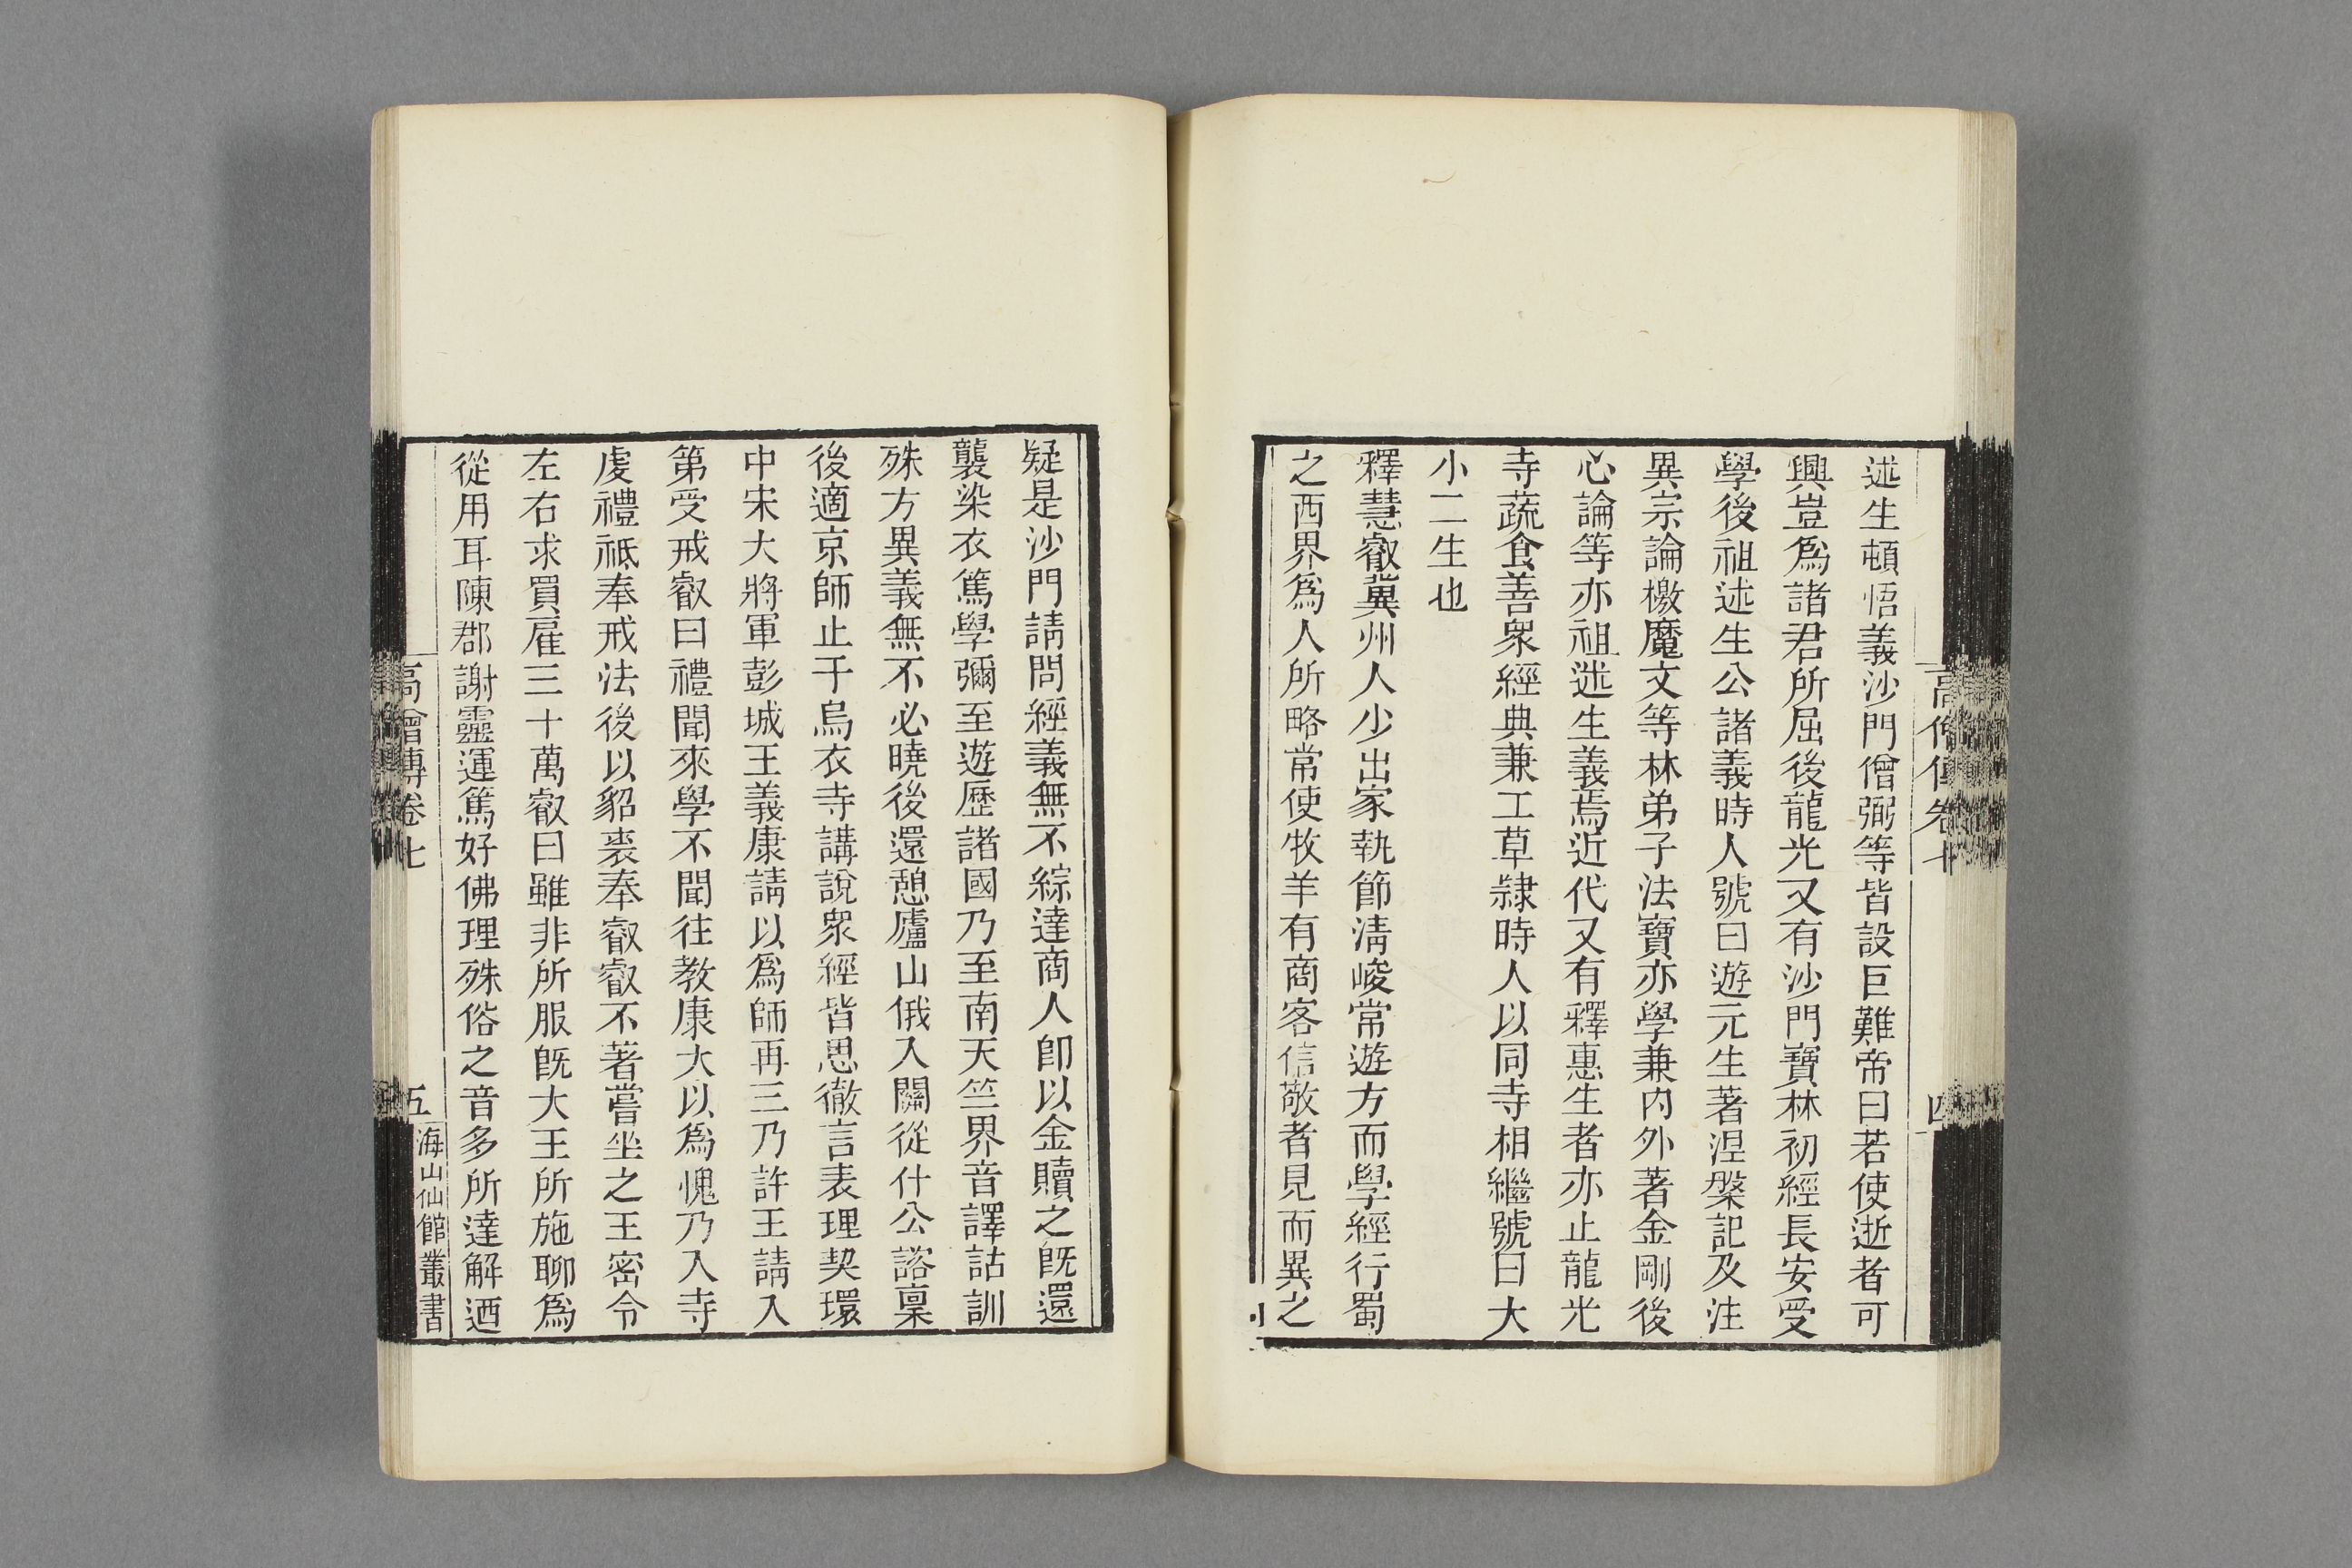 述生頓悟義沙門僧弼等皆設巨難帝曰若使逝者可
興豈爲諸君所屈後龍光又有沙門寶林初經長安受
學後祖述生公諸義時人號曰遊元生著涅槃記及注
異宗論檄魔文等林弟子法寶亦學兼內外著金剛後
心論等亦祖述生義焉近代又有釋惠生者亦止龍光
寺蔬食善衆經典兼工草隸時人以同寺相繼號曰大
小二生也
釋慧叡冀州人少出家執節清峻常遊方而學經行蜀
之西界爲人所略常使牧羊有商客信敬者見而異之
疑是沙門請問經義無不綜達商人卽以金贖之旣還
襲染衣篤學彌至遊歷諸國乃至南天竺界音譯詁訓
殊方異義無不必曉後還憩廬山俄入關從什公諮稟
後適京師止于烏衣寺講說衆經皆思徹言表理契環
中宋大將軍彭城王義康請以爲師再三乃許王請入
第受戒叡曰禮聞來學不聞往教康大以爲愧乃入寺
虔禮祗奉戒法後以貂裘奉叡叡不著嘗坐之王密令
左右求買雇三十萬叡曰雖非所服旣大王所施聊爲
從用耳陳郡謝靈運篤好佛理殊俗之音多所達解迺
高僧傳卷七
五
海山仙館叢書